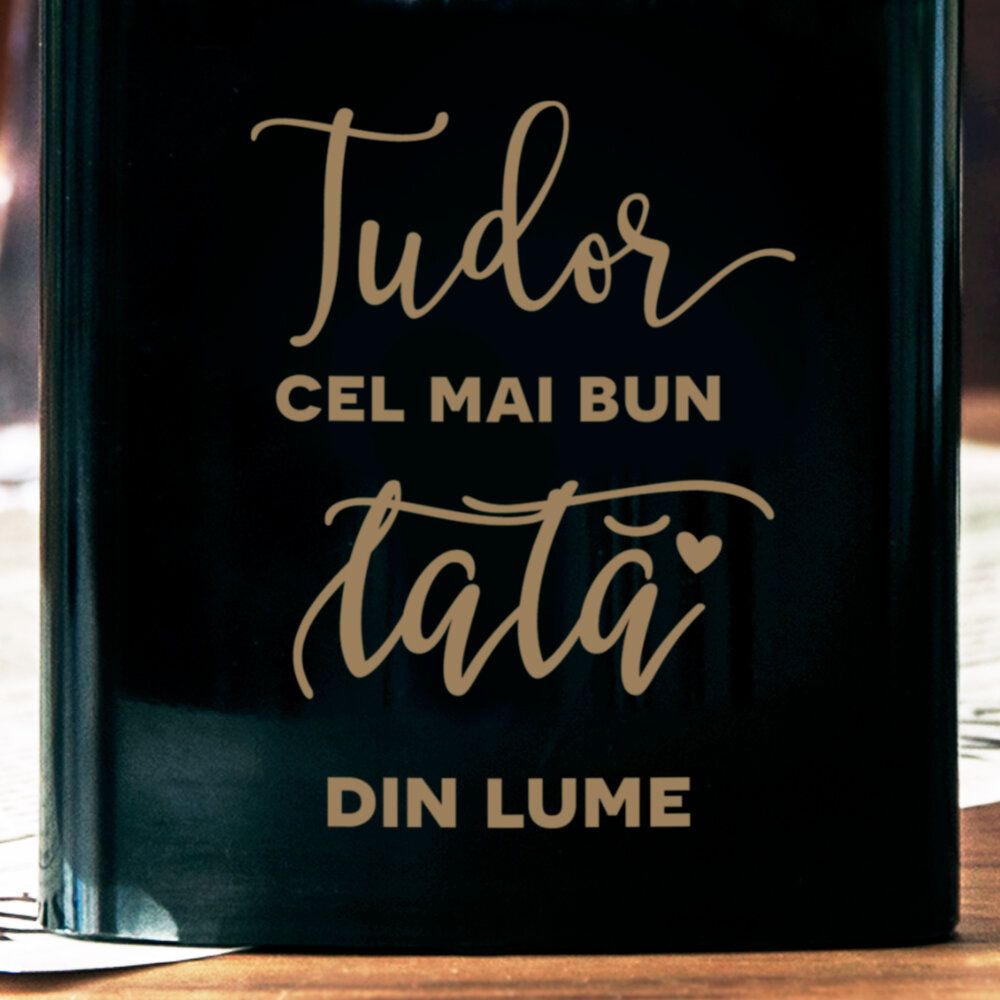 Tudor
CEL MAI BUN
tată
DIN LUME